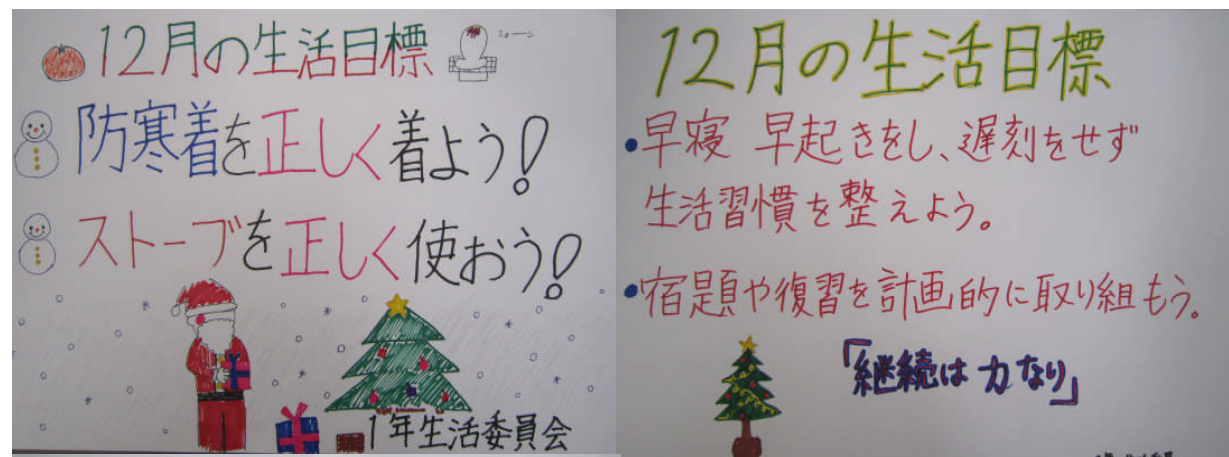 12月の生活目標
防寒着を正しく着よう!
ストーブを正しく使おう!
1年生活委員会
12月の生活目標
•早寝 早起きをし、遅刻をせず
生活習慣を整えよう。
•宿題や復習を計画的に取り組もう。
「継続は力なり」